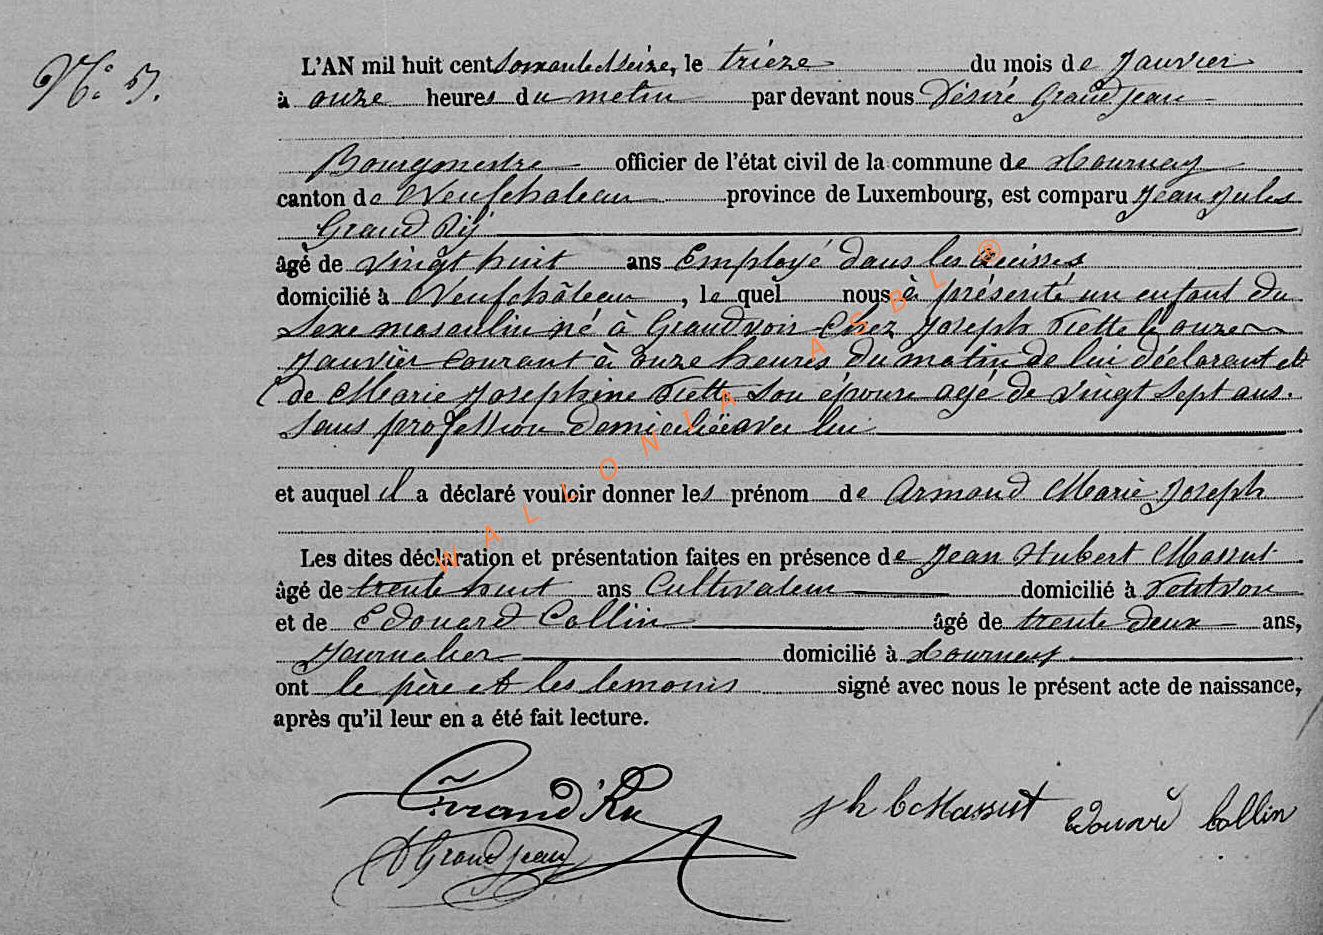 N° 5.
L'AN mil huit cent soixante et seize, le trièze du mois de Janvier
à onze heures du matin par devant nous Désiré Grandjean
Bourgmestre officier de l'état civil de la commune de Tournay
canton de Neufchateau province de Luxembourg, est comparu Jean Jules
Grand Ry
âgé de vingt huit ans Employé dans les
domicilié à Neufchâteau, le quel nous à présenté un enfant du
sexe masculin né à Grandvoir Chez Joseph Pette le onze
Janvier courant à onze heures du matin de lui déclarant et
de Marie Josephine Pette son épouse agé de vingt sept ans.
sans profession domiciliée avec lui
et auquel il a déclaré vouloir donner les prénom de Armand Marie Joseph
Les dites déclaration et présentation faites en présence de Jean Hubert Massut
âgé de trente huit ans Cultivateur domicilié à Petitvoir
et de Edouard Collin âgé de trente deux ans,
Journalier domicilié à Tournay
ont le père et les temoins signé avec nous le présent acte de naissance,
après qu'il leur en a été fait lecture.
Grand'Ry J h Massut Edouard Collin
D Grandjean
WALLONIA ASBL ®